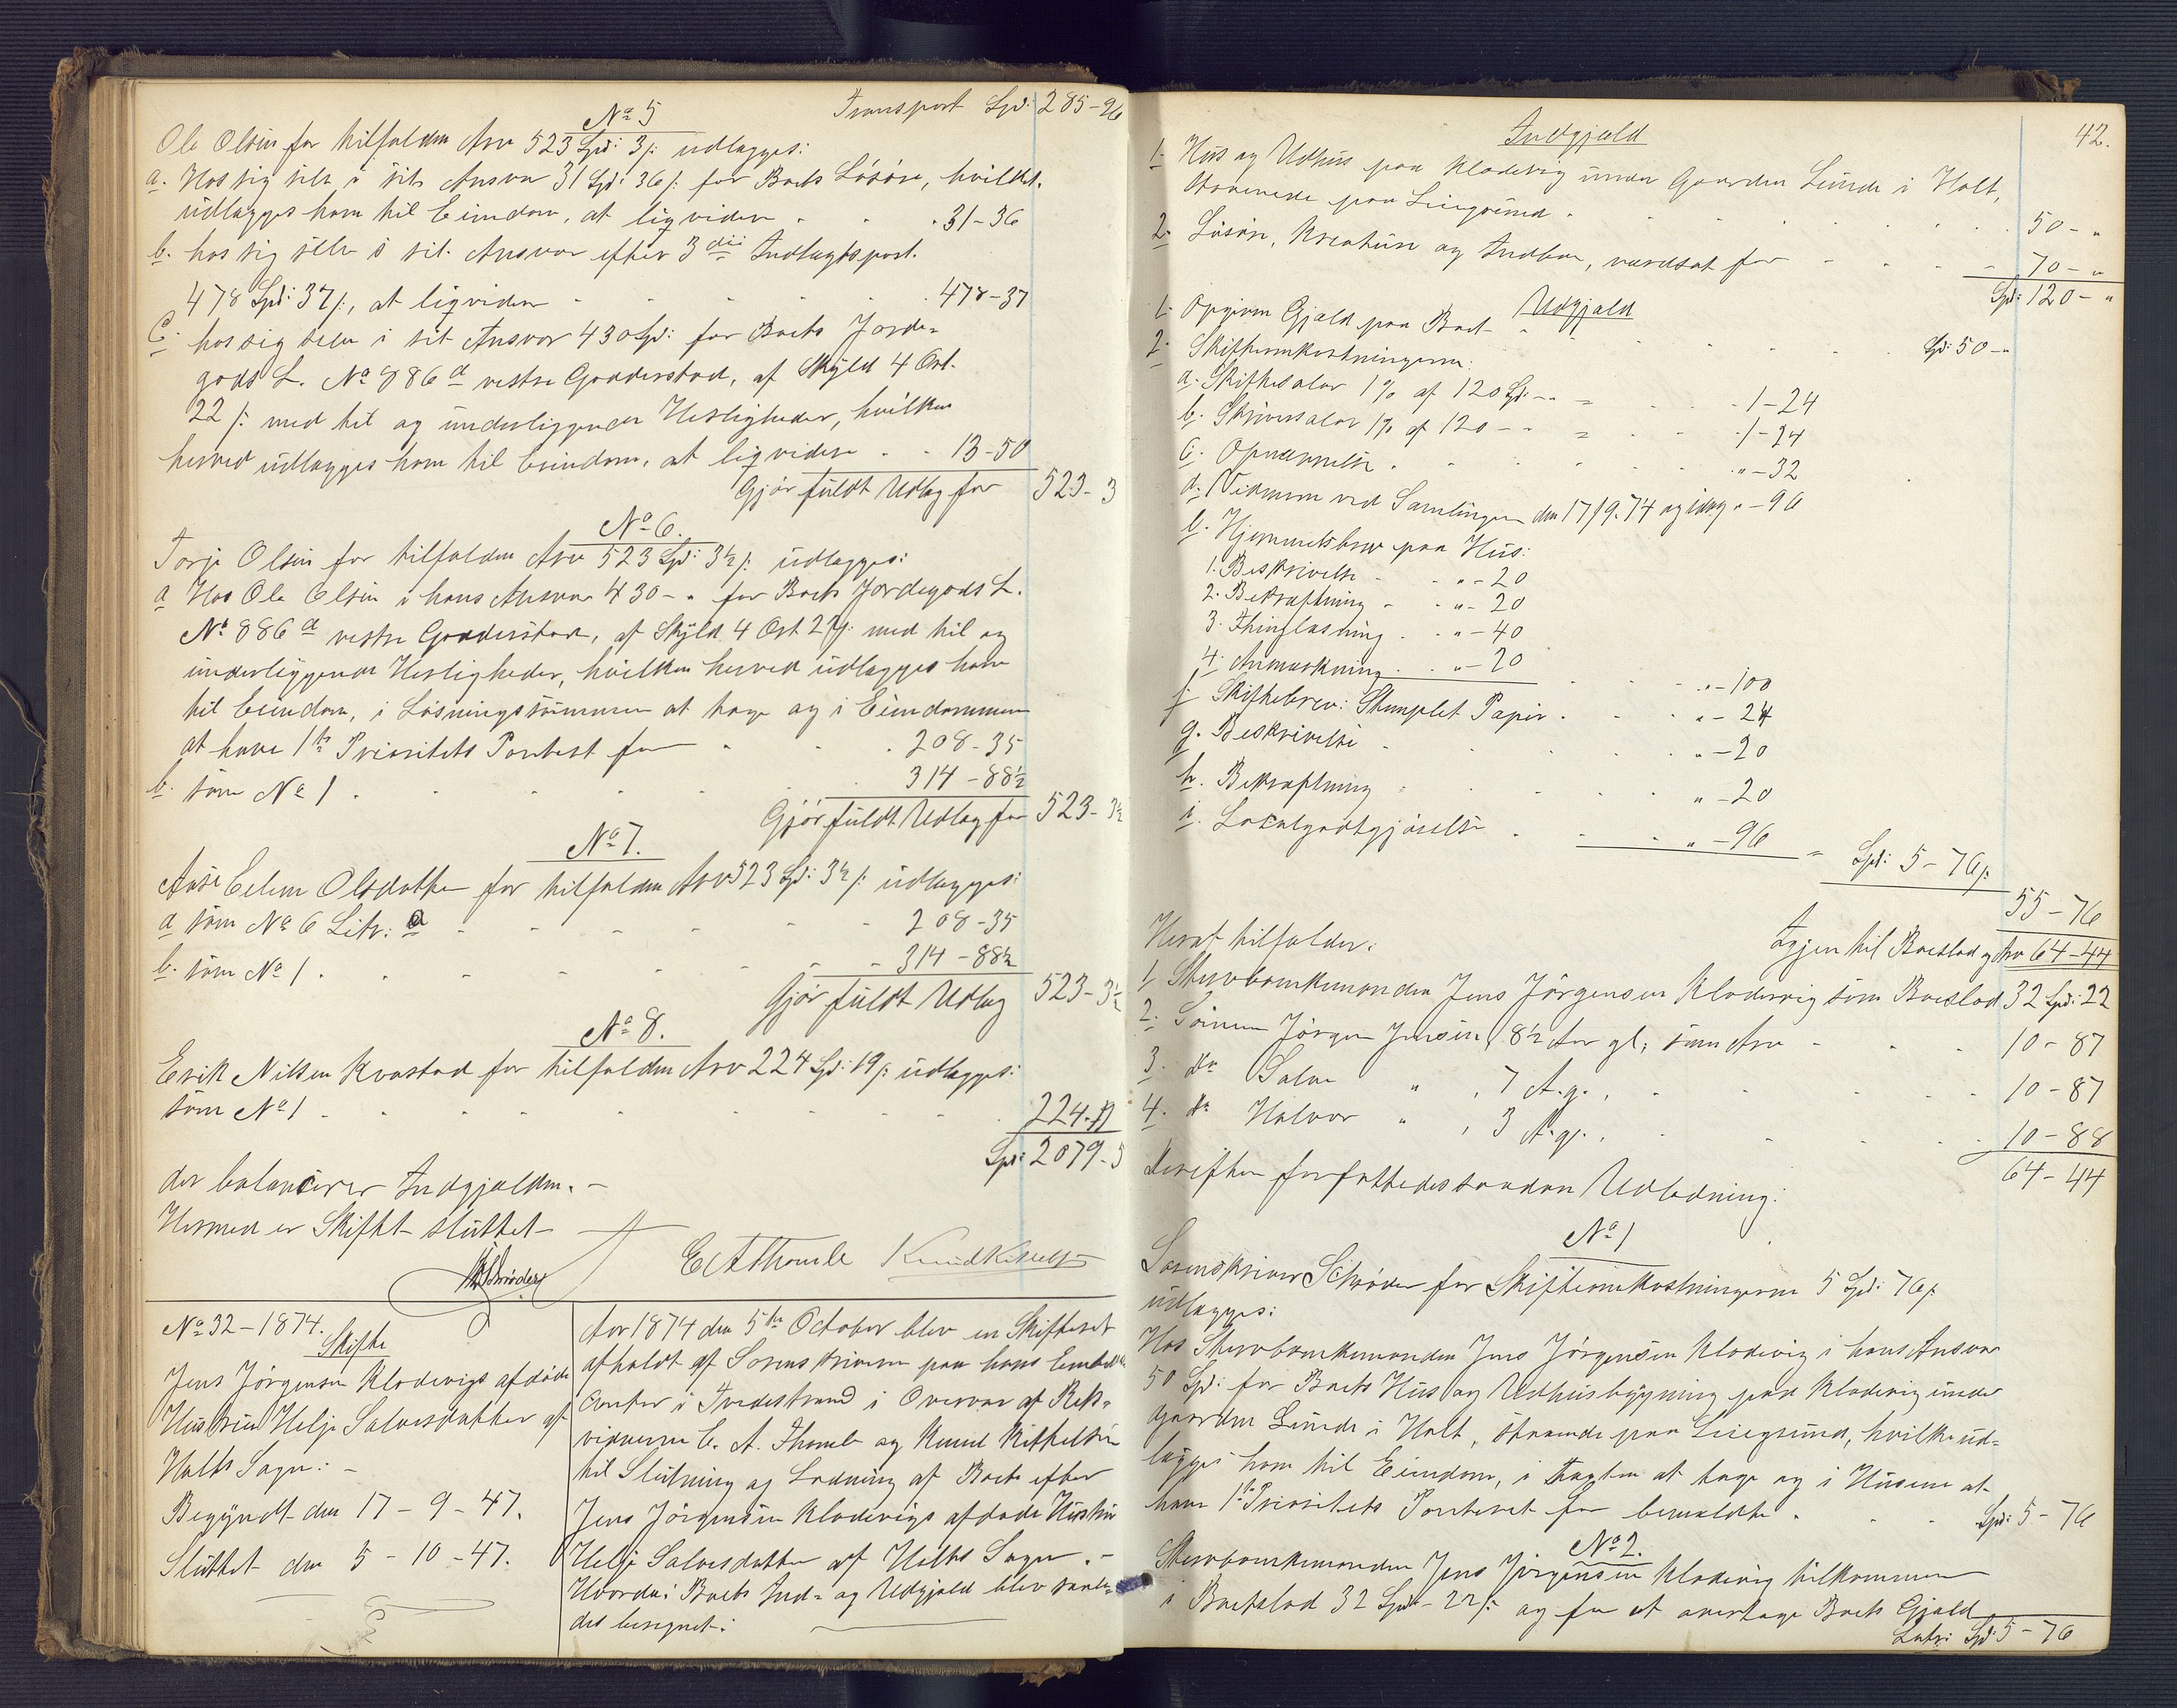 Transport Spd: 285-96
No 5
Ole Olsen for tilfalden Arv 523 Spd: 3 s: udlægges:
a. Hos sig selv i sit Ansvar 31 Spd: 36 s: for Boets Løsøre, hvilket
udlægges ham til Eiendom, at liqvidere . . . 31-36
b. hos sig selv i sit Ansvar efter 3die Indtægtspost.
478 Spd: 37 s:, at liqvidere - - - - . 478-37
c. hos sig selv i sit Ansvar 430 Spd: for Boets Jorde-
gods L. No 886 d vestre Goderstad, af Skyld 4 Ort.
22 s: med til og underliggende Herligheder, hvilken
herved udlægges ham til Eiendom, at liqvidere . . 13-50
Gjør fuldt Udlæg for 523-3
No 6.
Terje Olsen for tilfalden Arv 523 Spd: 3½ s: udlægges:
a Hos Ole Olsen i hans Ansvar 430 - " for Boets Jordegods L.
No 886 d vestre Goderstad, af Skyld 4 Ort 22 s: med til og
underliggende Herligheder, hvilken herved udlægges ham
til Eiendom, i Løsningssummen at tage og i Eiendommen
at have 1ste Prioritets Panteret for - - . 208-35
b. som No 1 . - - - . 314-88½
Gjør fuldt Udlæg for 523-3½
No 7.
Olsdatter for tilfalden Arv 523 Spd: 3½ s: udlægges:
a som No 6 Litr: a - - - - - 208-35
b. som No 1 . - - - - - 314-88½
Gjør fuldt Udlæg 523-3½
No 8.
Erik Nilsen Kvastad for tilfalden Arv 224 Spd: 19 s: udlægges:
som No 1 - - - - - . 224-19
Spd: 2079-5
der balancerer Indgjælden. -
Hermed er Skiftet sluttet -
E A Thomle Knud Kittelsen
Schrøder
No 32-1874.
Skifte
Jens Jørgensen Kladevigs afdøde
Hustru Helje Salvesdatter af
Holts Sogn: -
Begyndt den 17-9-47.
Sluttet den 5-10-47.
Aar 1874 den 5te October blev en Skifteret
afholdt af Sorenskriveren paa hans Embeds
contor i Tvedestrand i Overvær af Rets-
vidnerne E. A. Thomle og Knud Kittelsen
til Slutning og Lodning af Boet efter
Jens Jørgensen Kladevigs afdøde Hustru
Helje Salvesdatter af Holts Sogn. -
Hvorda: Boets Ind- og Udgjæld blev saale-
des beregnet:
42.
Indgjæld
1. Hus og Udhus paa Kladevig under Gaarden Lunde i Holt,
staaende paa Leiegrund . . . . . 50 - "
2. Løsøre, Kreature og Indbo, værdsat for - - - 70 - "
Spd: 120 - "
Udgjæld
1. Opgiven Gjæld paa Boet - - - - Spd: 50 - "
2. Skifteomkostningerne:
a. Skiftesalær 1% af 120 Spd: - " = . . 1-24
b. Skriversalær 1% af 120 - " = . . 1-24
c. Opnævnelse . . . . "-32
d. Vidnerne ved Samlingen den 17/9-74 og idag " - 96
e. Hjemmelsbrev paa Hus:
1. Beskrivelse - . "-20
2. Bekræftning - . "-20
3. Thinglæsning . . "-40
4. Anmærkning . . "-20 . . . "-100
f. Skiftebrev: Stemplet Papir . . . "-24
g. Beskrivelse - . . . "-20
h. Bekræftning - . . . "-20
i. Lokalgodtgjørelse . . . "-96 = Spd: 5-76 s:
55-76
Igjen til Boeslod og Arv 64-44
Heraf tilfalder:
1. Stervboenkemanden Jens Jørgensen Kladevig som Boeslod 32 Spd: 22
2. Sønnen Jørgen Jensen, 8½ Aar gl, som Arv - - - 10-87
3. do Salve " , 7 A. g. , - - - 10-87
4. do Halvor " , 3 A. g. , - - - 10-88
64-44
Derefter forfattedes saadan Udlodning:
No 1
Sorenskriver Schrøder for Skifteomkostningerne 5 Spd: 76 s:
udlægges:
Hos Stervboenkemanden Jens Jørgensen Kladevig i hans Ansvar
50 Spd: for Boets Hus og Udhusbygning paa Kladevig under
Gaarden Lunde i Holt, staaende paa Leiegrund, hvilke ud-
lægges ham til Eiendom, i Taxten at tage og i Husene at
have 1ste Prioritets Panteret for bemeldte . - - Spd: 5-76
No 2.
Stervboenkemanden Jens Jørgensen Kladevig tilkommer
i Boeslod 32 Spd - 22 s: og for at overtage Boets Gjæld
Latus Spd: 5-76